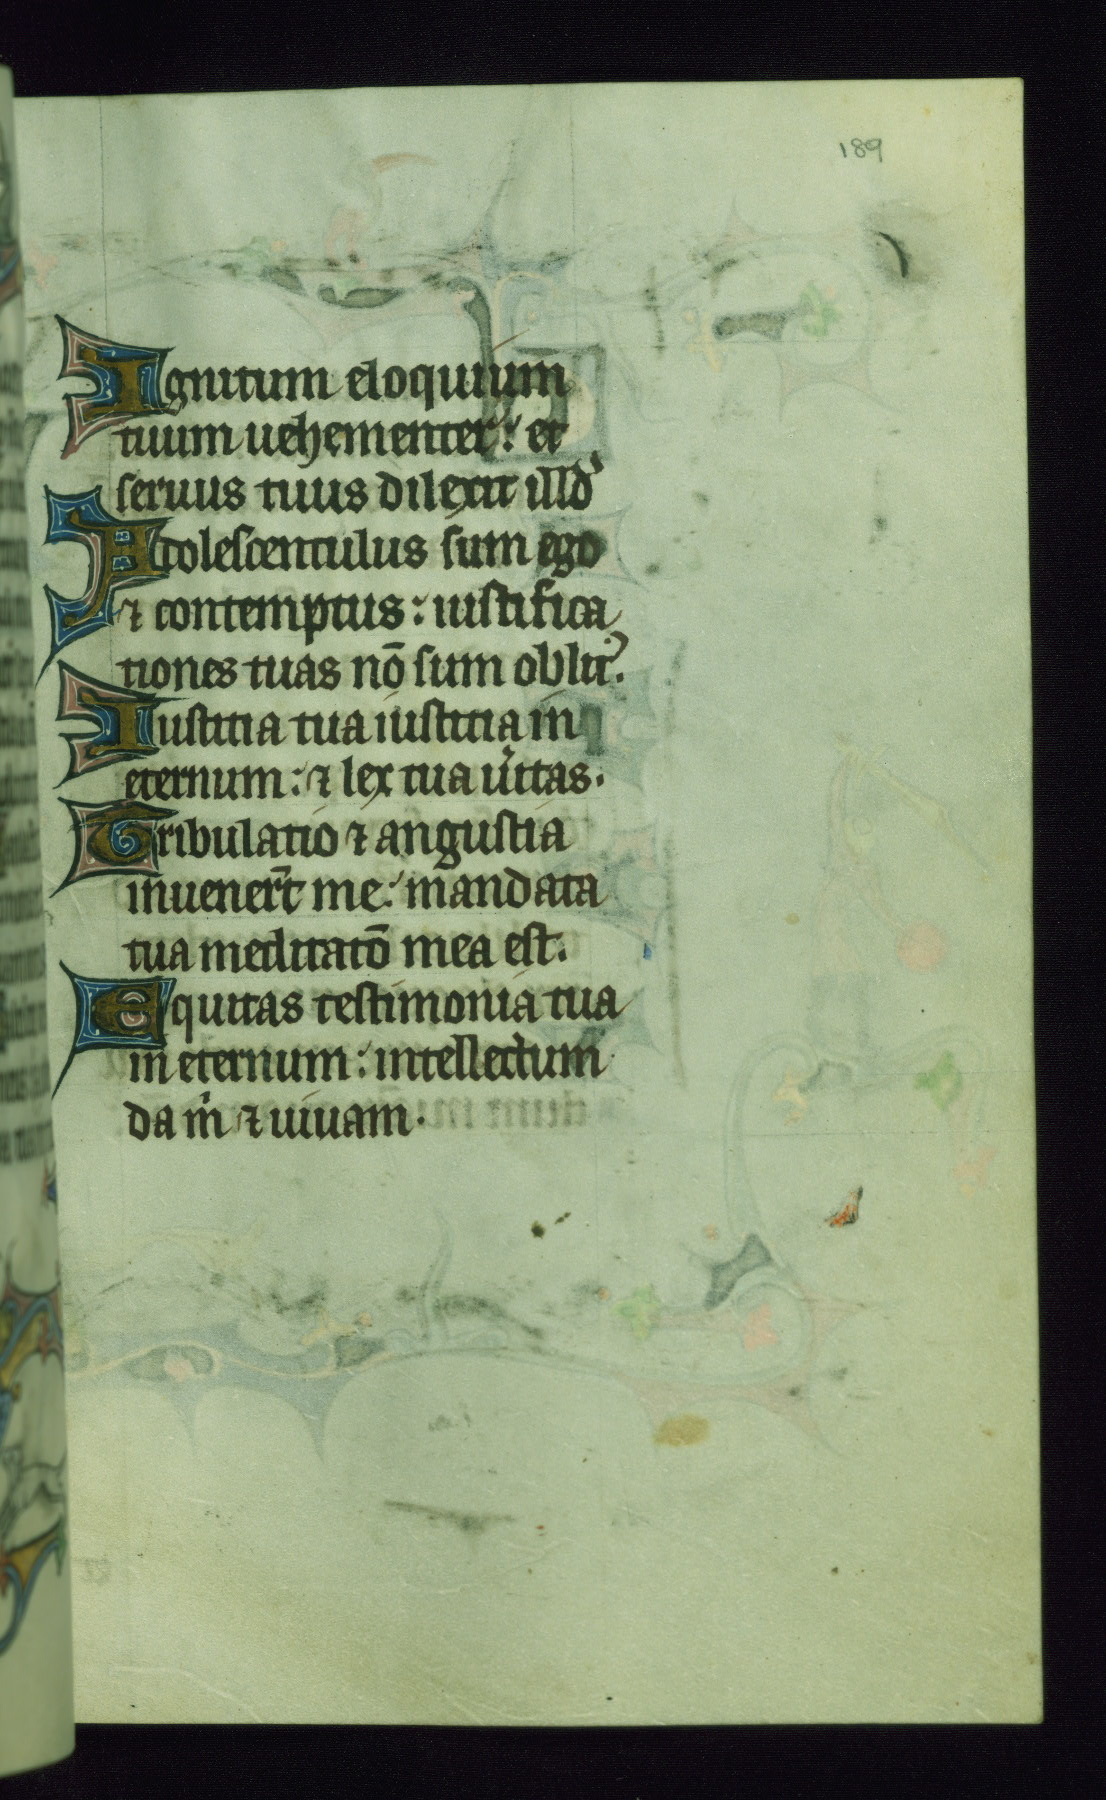 189
Ignitum eloquium
tuum uehementer: et
seruus tuus dilexit illd'
Adolescentulus sum ego
⁊ contemptus: iustifica
tiones tuas nō sum oblit᾿.
Iustitia tua iustitia in
eternum: ⁊ lex tua u'itas.
Tribulatio ⁊ angustia
inuener̄t me: mandata
tua meditatō mea est.
Equitas testimonia tua
in eternum: intellectum
da m' ⁊ uiuam.